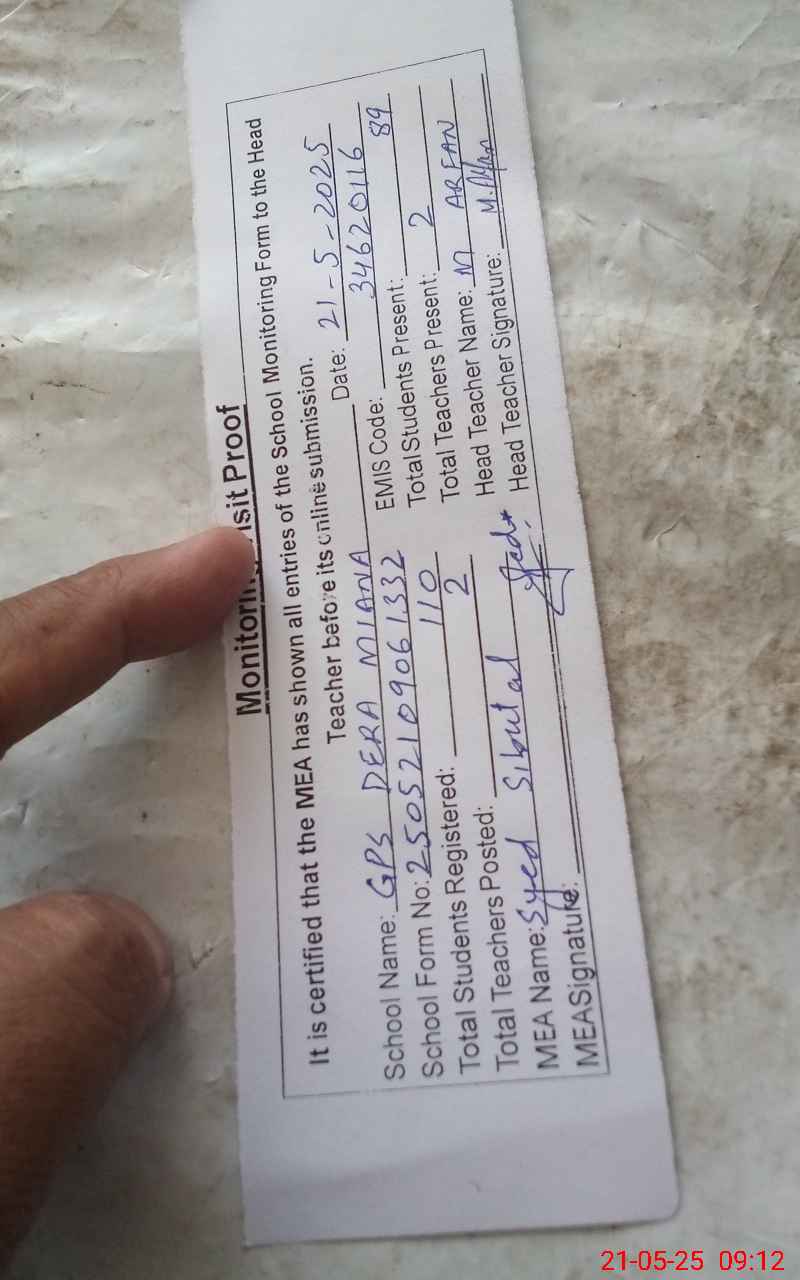 Monitoring Visit Proof
It is certified that the MEA has shown all entries of the School Monitoring Form to the Head
Teacher before its online submission.
School Name: GPS DERA MIANA Date: 21-5-2025
School Form No: 2505210906 1332 EMIS Code: 34620116
Total Students Registered: 110 Total Students Present: 89
Total Teachers Posted: 2 Total Teachers Present: 2
MEA Name: Syed Sibutal Head Teacher Name: M ARFAN
MEASignature: Head Teacher Signature: M. Arfan
21-05-25 09:12